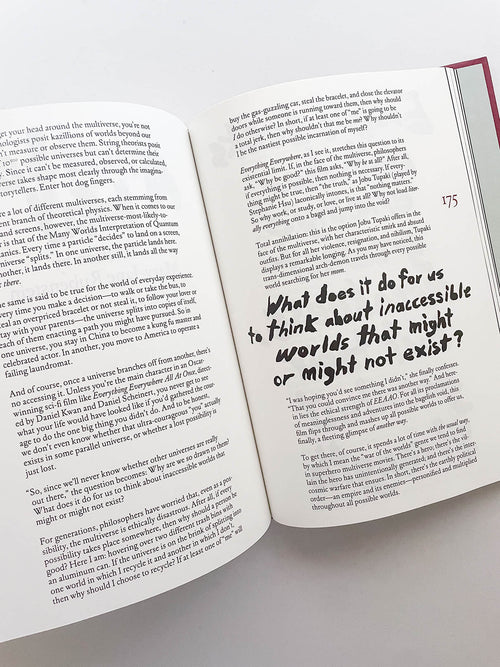 get your head around the multiverse, you're not
ologists posit kazillions of worlds beyond our
't measure or observe them. String theorists posit
possible universes but can't determine their
. Since it can't be measured, observed, or calculated,
verse takes shape most clearly through the imagina-
torytellers. Enter hot dog fingers.
re a lot of different multiverses, each stemming from
erent branch of theoretical physics. When it comes to our
and screens, however, the multiverse-most-likely-to-
r is that of the Many Worlds Interpretation of Quantum
anics. Every time a particle "decides" to land on a screen,
niverse "splits." In one universe, the particle lands here.
nother, it lands there. In another still, it lands all the way
there.
he same is said to be true for the world of everyday experience.
very time you make a decision—to walk or take the bus, to
teal an overpriced bracelet or not steal it, to follow your love or
tay with your parents—the universe splits into copies of itself,
each of them enacting a path you might have pursued. So in
one universe, you stay in China to become a kung fu master and
celebrated actor. In another, you move to America to operate a
failing laundromat.
And of course, once a universe branches off from another, there's
accessing it. Unless you're the main character in an Oscar-
winning sci-fi film like Everything Everywhere All At Once, direct-
ed by Daniel Kwan and Daniel Scheinert, you never get to see
what your life would have looked like if you'd gathered the cour-
age to do the one big thing you didn't do. And to be honest,
we don't even know whether that ultra-courageous "you" actually
exists in some parallel universe, or whether lost possibility is
just lost.
"So, since we'll never know whether other universes are really
out there," the question becomes: Why are we so drawn to them?
What does it do for us to think about inaccessible worlds that
might or might not exist?
For generations, philosophers have worried that, even as a pos-
sibility, the multiverse is ethically disastrous. After all, if every
possibility takes place somewhere, then why should a person be
good? Here I am: hovering over two different trash bins with
an aluminum can. If the universe is on the brink of splitting into
one world in which I recycle it and another in which I don't,
then why should I choose to recycle? If at least one of "me" will
buy the gas-guzzling car, steal the bracelet, and close the elevator
doors while someone is running toward them, then why should
I do otherwise? In short, if at least one of "me" is going to be
a total jerk, then why shouldn't that me be me? Why shouldn't
I be the nastiest possible incarnation of myself?
Everything Everywhere, as I see it, stretches this question to its
existential limit. If, in the face of the multiverse, philosophers
ask, "Why be good?" this film asks, "Why be at all?" After all,
if everything is possible, then nothing is necessary. If every-
thing might be true, then "the truth," as Jobu Tupaki (played by
Stephanie Hsu) laconically intones, is that "nothing matters."
So why work, or study, or love, or live at all? Why not load liter-
ally everything onto a bagel and jump into the void?
175
Total annihilation: this is the option Jobu Tupaki offers in the
face of the multiverse, with her characteristic smirk and absurd
outfits. But for all her violence, resignation, and nihilism, Tupaki
displays a remarkable longing. As you may have noticed, this
trans-dimensional arch-demon travels through every possible
world searching for her mom.
What does it do for us
to think about inaccessible
worlds that might
or might not exist?
"I was hoping you'd see something I didn't," she finally confesses.
"That you could convince me there was another way." And here-
in lies the ethical strength of EEAAO. For all its proclamations
of meaninglessness and adventures into the bagelish void, this
film flips through and mashes up all possible worlds to offer us,
finally, a fleeting glimpse of another way.
To get there, of course, it spends a lot of time with the usual way,
by which I mean the "war of the worlds" genre we tend to find
in superhero multiverse movies. There's a hero, there's the vil-
lain the hero has unintentionally generated, and there's the inter-
cosmic warfare that ensues. In short, there's the earthly political
order—an empire and its enemies—personified and multiplied
throughout all possible worlds.